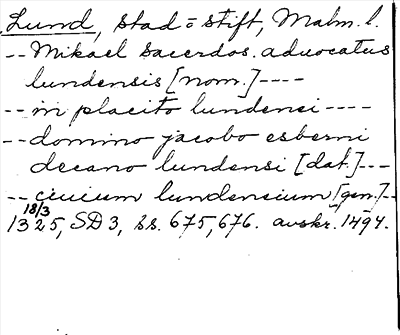 Lund, stad = stift, Malm. l.
-- Mikael sacerdos. aduocatus
lundensis [nom.] ----
-- in placito lundensi ----
-- domino jacobo esberni
decano lundensi [dat.] ---
-- ciuium lundensium [gen.] --
18/3
1325, SD 3, ss. 675, 676. avskr. 1494.